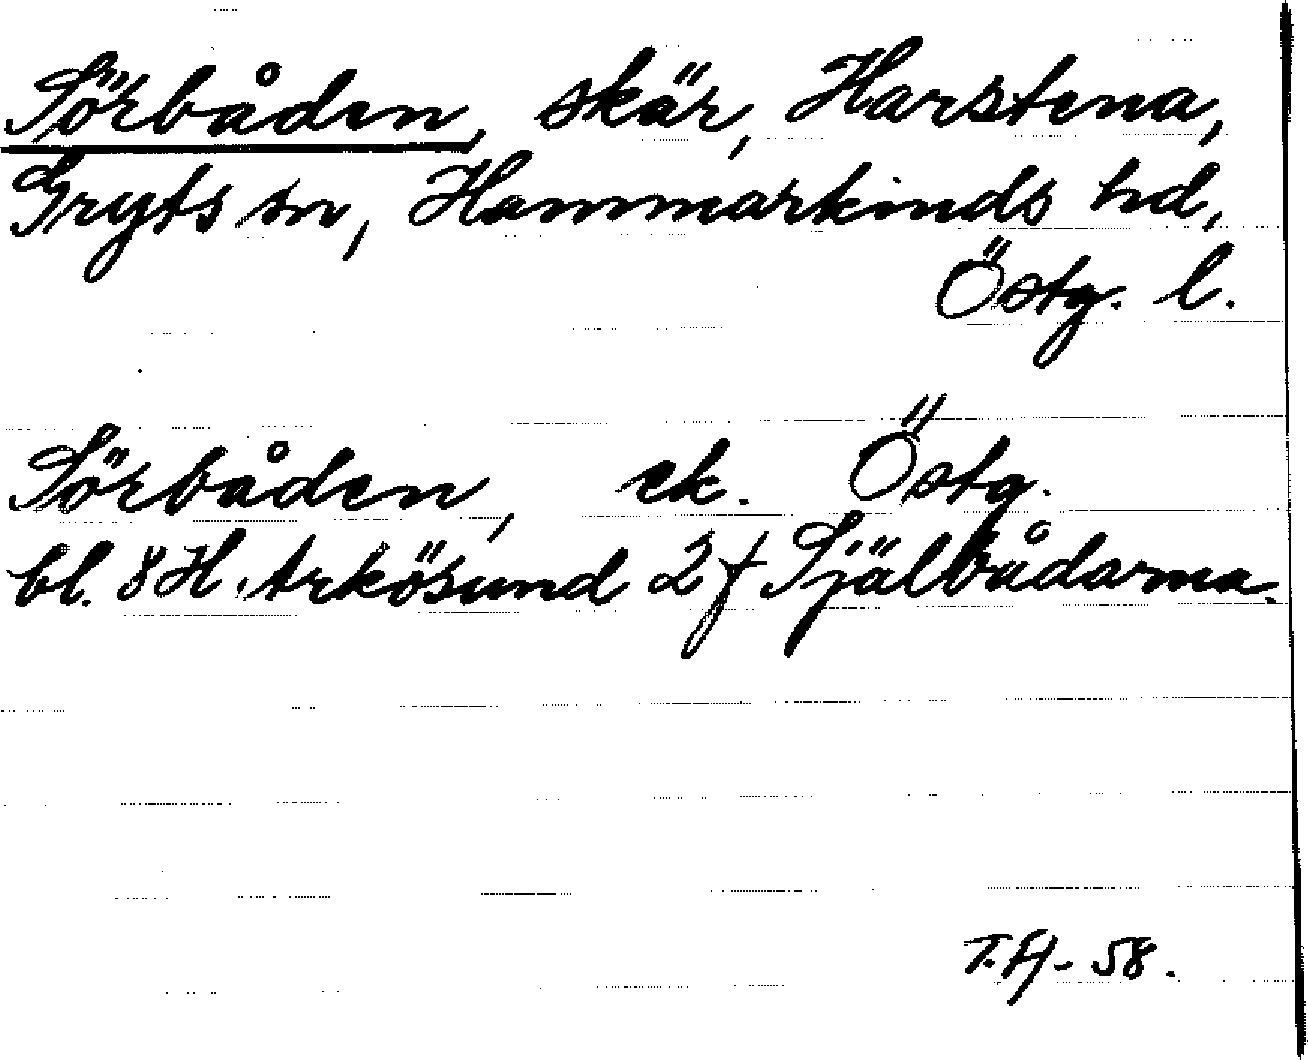 Sörbåden, skär, Harstena,
Gryts sn, Hammarkinds hd,
Östg. l.
Sörbåden, ek. Östg.
bl. 8 H. Arkösund 2 f Själbådarna.
T. Hj- 58.